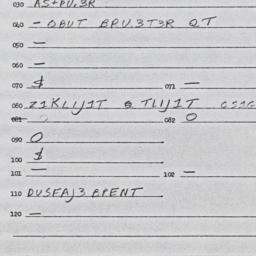 030 AS+PU.3R
040 — OBUT EPU.3T3R QT
050 —
060 —
070 $ 071 —
080 Z1KLIJ1T & TLIJ1T
081 082 O
090 O
100 $
101 — 102 —
110 DUSEAJ3 EPENT
120 —